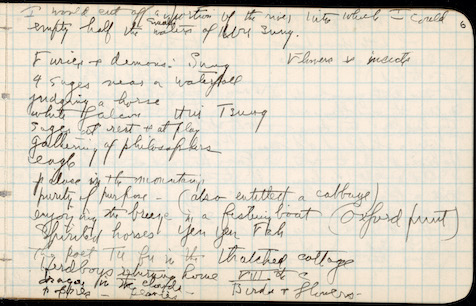 I would cut off a portion of the river into which I could
6
empty half the waters of Wu Sung.
Furies & demons: Sung
Flowers & insects
9 Sages near a waterfall
judging a horse
white falcon Hui Tsung
Sages at rest & at play
gathering of philosophers
eagle
palace in the mountains
purity of purpose - (also entitled a cabbage)
enjoying the breeze in a fishing boat (Oxford print)
Spirited horses Yen Yen Fah
The poet Tu Fu in the thatched cottage
herdboys returning home XIII th c
dragon in the clouds
Birds & flowers -